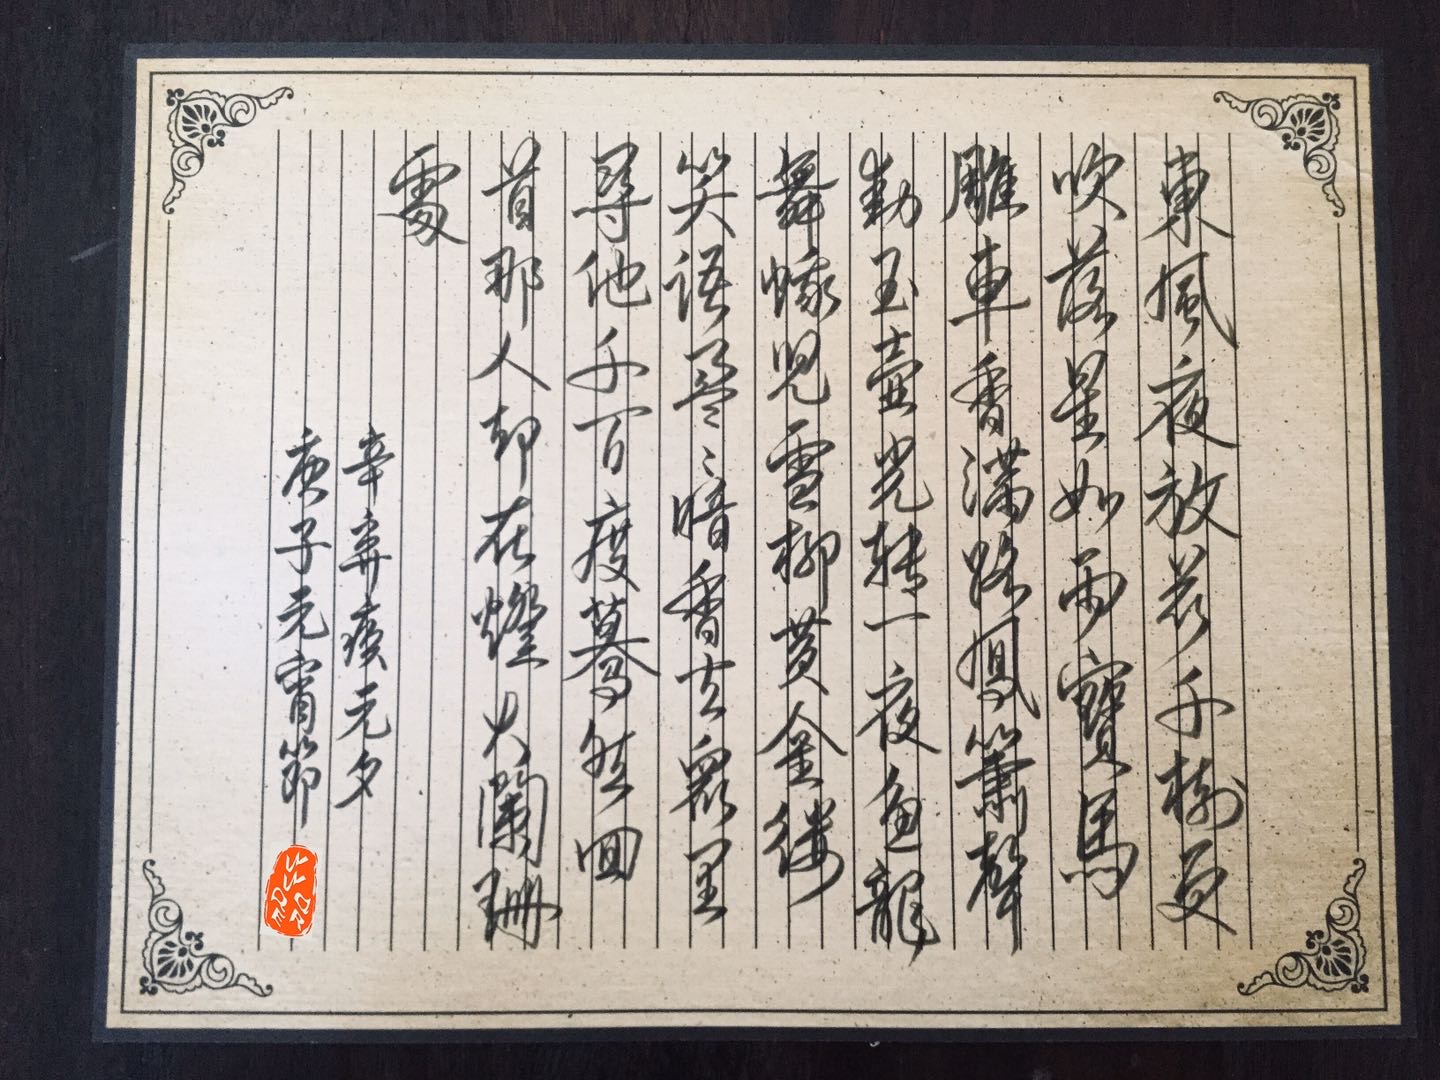 東風夜放花千樹更
吹落星如雨寶馬
雕車香滿路鳳簫聲
動玉壺光转一夜鱼龍
舞蛾兒雪柳黄金缕
笑語盈〻暗香去眾里
尋他千百度驀然回
首那人却在燈火闌珊
處
辛弃疾元夕
庚子元宵節